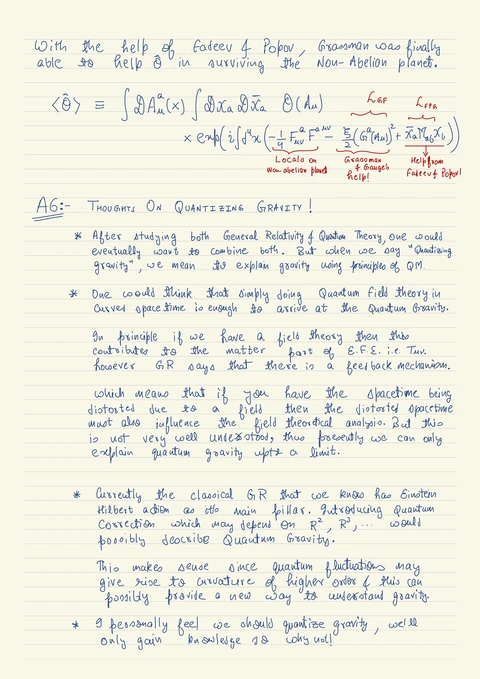 With the help of Fadeev & Popov, Grassman was finally
able to help Ô in surviving the Non-Abelian planet.
⟨Ô⟩ ≡ ∫ 𝒟A_μ^a(x) ∫ 𝒟χ_a 𝒟χ̄_a Ô(A_μ)
L_GF L_FPG
× exp(i∫d⁴x(-1/4 F^a_μν F^{a μν} - ξ/2 (G^a(A_μ))² + χ̄_a M_ab χ_b))
Locals on
Non abelian planet
Grassman
& Gauge's
help!
Help from
Fadeev & Popov!
A6:- THOUGHTS ON QUANTIZING GRAVITY!
* After studying both General Relativity & Quantum Theory, one would
eventually want to combine both. But when we say "Quantizing
gravity", we mean to explain gravity using principles of QM.
* One would think that simply doing Quantum Field theory in
curved space time is enough to arrive at the Quantum Gravity.
In principle if we have a field theory then this
contributes to the matter part of E.F.E. i.e Tμν.
however GR says that there is a feedback mechanism.
which means that if you have the spacetime being
distorted due to a field then the distorted spacetime
must also influence the field theoretical analysis. But this
is not very well understood, thus presently we can only
explain quantum gravity upto a limit.
* Currently the classical GR that we know has Einstein
Hilbert action as its main pillar. Introducing Quantum
Correction which may depend on R², R³, ... would
possibly describe Quantum Gravity.
This makes sense since quantum fluctuations may
give rise to curvature of higher order & this can
possibly provide a new way to understand gravity.
* I personally feel we should quantize gravity, we'll
only gain knowledge so why not!